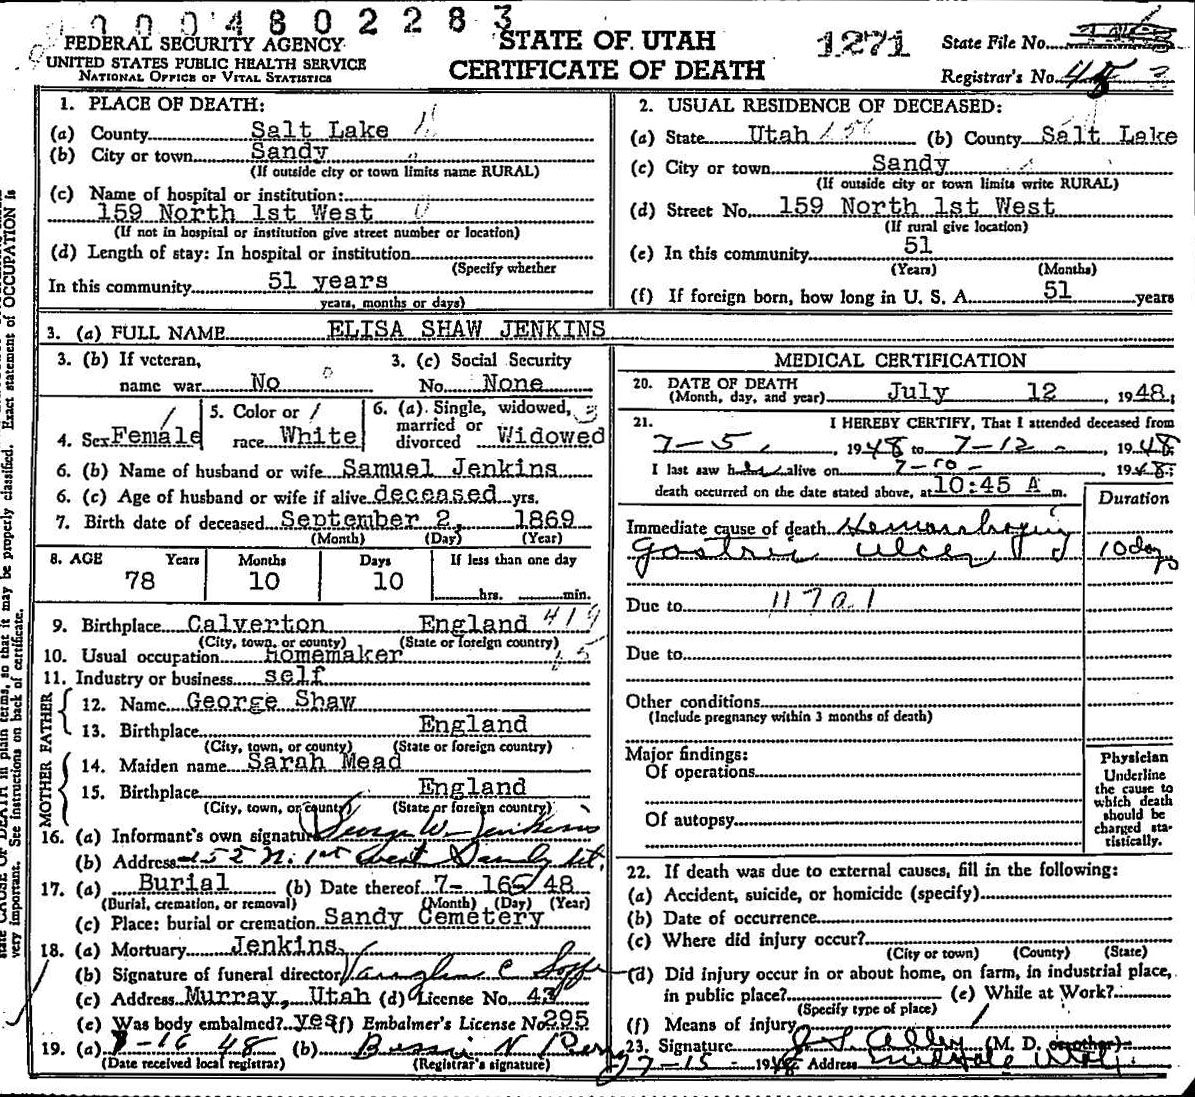 0004802283
FEDERAL SECURITY AGENCY
UNITED STATES PUBLIC HEALTH SERVICE
NATIONAL OFFICE OF VITAL STATISTICS
STATE OF UTAH
CERTIFICATE OF DEATH
1271
State File No.
Registrar's No.
1. PLACE OF DEATH:
(a) County Salt Lake
(b) City or town Sandy
(If outside city or town limits name RURAL)
(c) Name of hospital or institution:
159 North 1st West
(If not in hospital or institution give street number or location)
(d) Length of stay: In hospital or institution
(Specify whether
In this community 51 years
years, months or days)
2. USUAL RESIDENCE OF DECEASED:
(a) State Utah (b) County Salt Lake
(c) City or town Sandy
(If outside city or town limits write RURAL)
(d) Street No. 159 North 1st West
(If rural give location)
(e) In this community 51
(Years) (Months)
(f) If foreign born, how long in U. S. A. 51 years
3. (a) FULL NAME ELISA SHAW JENKINS
3. (b) If veteran,
name war No
3. (c) Social Security
No. None
4. Sex Female
5. Color or
race White
6. (a) Single, widowed,
married or
divorced Widowed
6. (b) Name of husband or wife Samuel Jenkins
6. (c) Age of husband or wife if alive deceased yrs.
7. Birth date of deceased September 2, 1869
(Month) (Day) (Year)
8. AGE Years Months Days If less than one day
78 10 10 hrs. min.
9. Birthplace Calverton England
(City, town, or county) (State or foreign country)
10. Usual occupation homemaker
11. Industry or business self
FATHER
12. Name George Shaw
13. Birthplace England
(City, town, or county) (State or foreign country)
MOTHER
14. Maiden name Sarah Mead
15. Birthplace England
(City, town, or county) (State or foreign country)
16. (a) Informant's own signature George W. Jenkins
(b) Address 152 N. 1st West Sandy Ut.
17. (a) Burial (b) Date thereof 7- 16 / 48
(Burial, cremation, or removal) (Month) (Day) (Year)
(c) Place: burial or cremation Sandy Cemetery
18. (a) Mortuary Jenkins
(b) Signature of funeral director Vaughn C
(c) Address Murray, Utah (d) License No. 43
(e) Was body embalmed? yes (f) Embalmer's License No. 295
19. (a) 7-16 48 (b) N
(Date received local registrar) (Registrar's signature)
MEDICAL CERTIFICATION
20. DATE OF DEATH
(Month, day, and year) July 12, 1948;
21. I HEREBY CERTIFY, That I attended deceased from
7-5, 1948 to 7-12-, 1948
I last saw her alive on 7-10-, 1948;
death occurred on the date stated above, at 10:45 A m.
Duration
Immediate cause of death Hemorrhaging
Gastric ulcer 10 days
Due to
Due to
Other conditions
(Include pregnancy within 3 months of death)
Major findings:
Of operations
Of autopsy
Physician
Underline
the cause to
which death
should be
charged sta-
tistically.
22. If death was due to external causes, fill in the following:
(a) Accident, suicide, or homicide (specify)
(b) Date of occurrence
(c) Where did injury occur?
(City or town) (County) (State)
(d) Did injury occur in or about home, on farm, in industrial place,
in public place? (e) While at Work?
(Specify type of place)
(f) Means of injury
23. Signature (M. D. or other)
7-15-1948 Address Midvale Utah
state CAUSE OF DEATH in plain terms, so that it may be properly classified. Exact statement of OCCUPATION is
very important. See instructions on back of certificate.